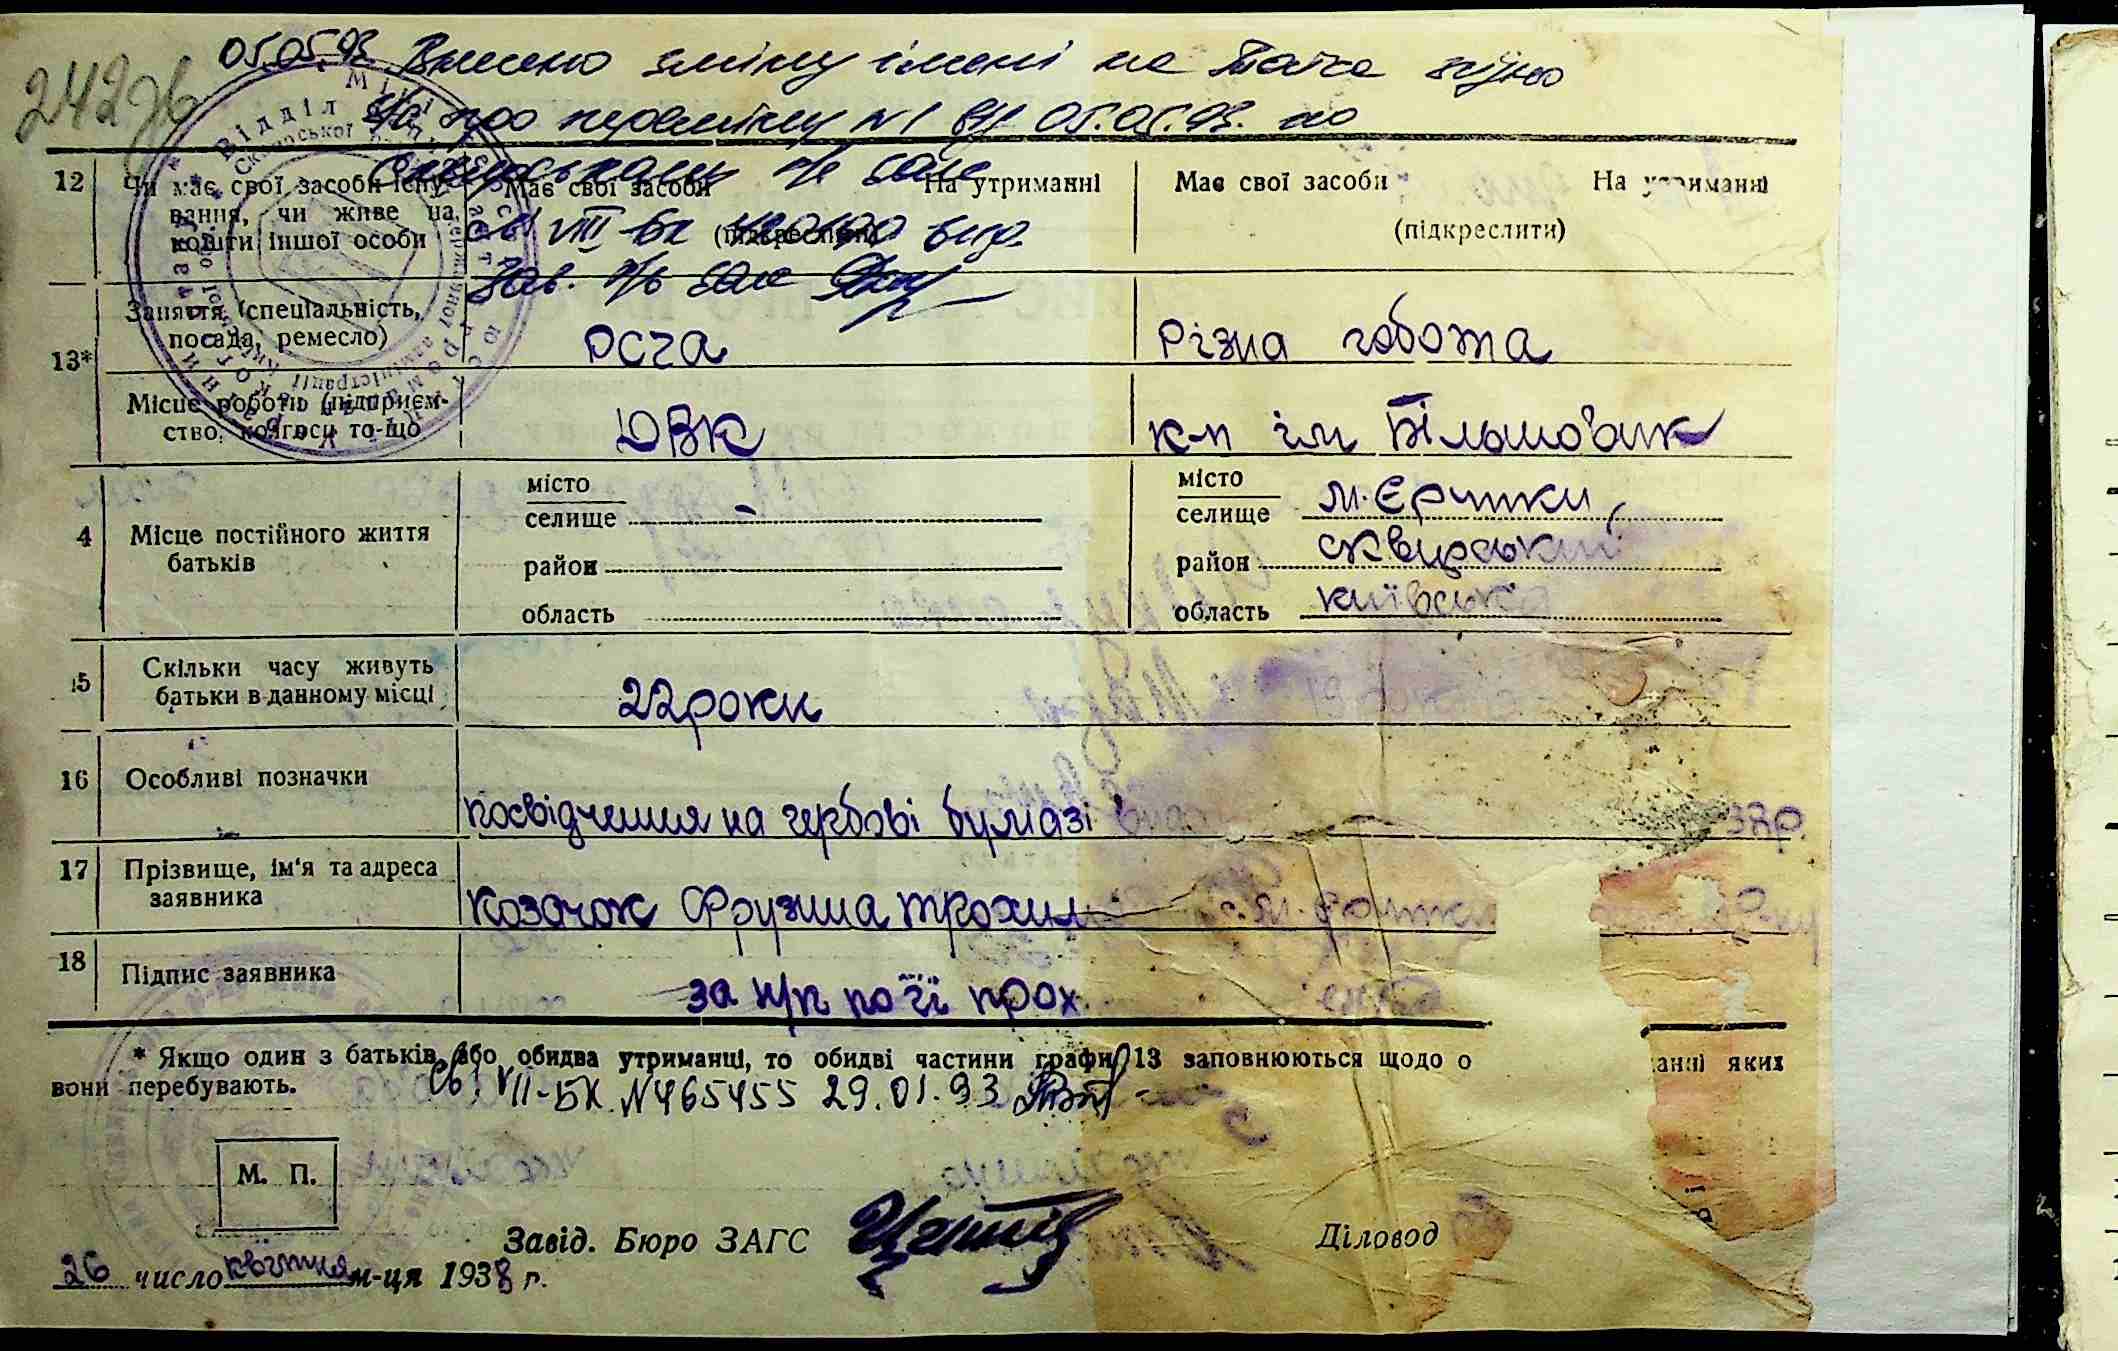 242
05.05.93 Внесено зміну імені на згідно
про переміну N1 від 05.05.93. по
12 Чи має свої засоби існування, чи живе на кошти іншої особи
Має свої засоби На утриманні
(підкреслити)
Має свої засоби На утриманні
(підкреслити)
VIII-БК
Зав.
13* Заняття (спеціальність, посада, ремесло)
РСЧА
Різна робота
Місце роботи (підприємство, колгосп то-що
ДВК
к-п ім Більшовик
4 Місце постійного життя батьків
місто
селище -
район
область
місто
селище м. Єрчики,
район Сквирський
область Київська
15 Скільки часу живуть батьки в данному місці
22 роки
16 Особливі позначки
посвідчення на гербові бумазі 38р.
17 Прізвище, ім'я та адреса заявника
Козачок Фрузина Трохим
18 Підпис заявника
за н/п по її прох.
* Якщо один з батьків, або обидва утриманці, то обидві частини графи 13 заповнюються щодо о анні яких
вони перебувають.
Св. VII-БК. N465455 29.01.93
М. П.
Завід. Бюро ЗАГС
Діловод
26 число квітня м-ця 1938 г.